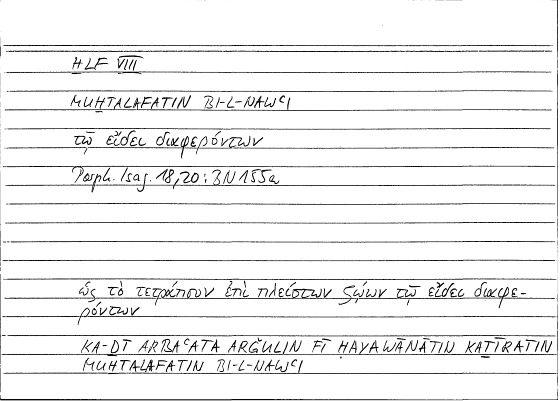 ḪLF VIII
MUḪTALAFATIN BI-L-NAWʿI
τῷ εἴδει διαφερόντων
Porph. Isag. 18,20 : BN 155a
ὡς τὸ τετράπουν ἐπὶ πλείστων ζῴων τῷ εἴδει διαφε-
ρόντων
KA-ḎĪ ARBAʿATA ARǦULIN FĪ ḤAYAWĀNĀTIN KAṮĪRATIN
MUḪTALAFATIN BI-L-NAWʿI